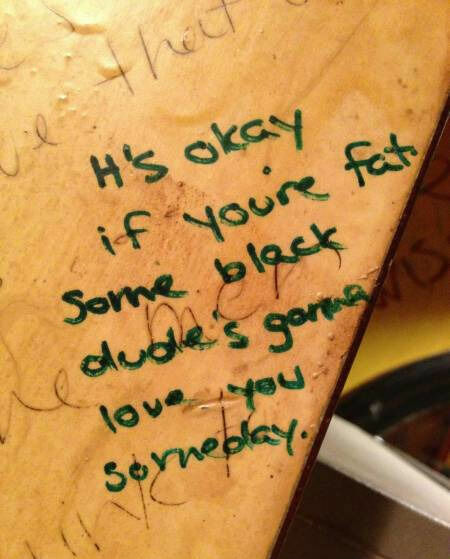 that
It's okay
if you're fat.
some black
dude's gonna
love you
someday.